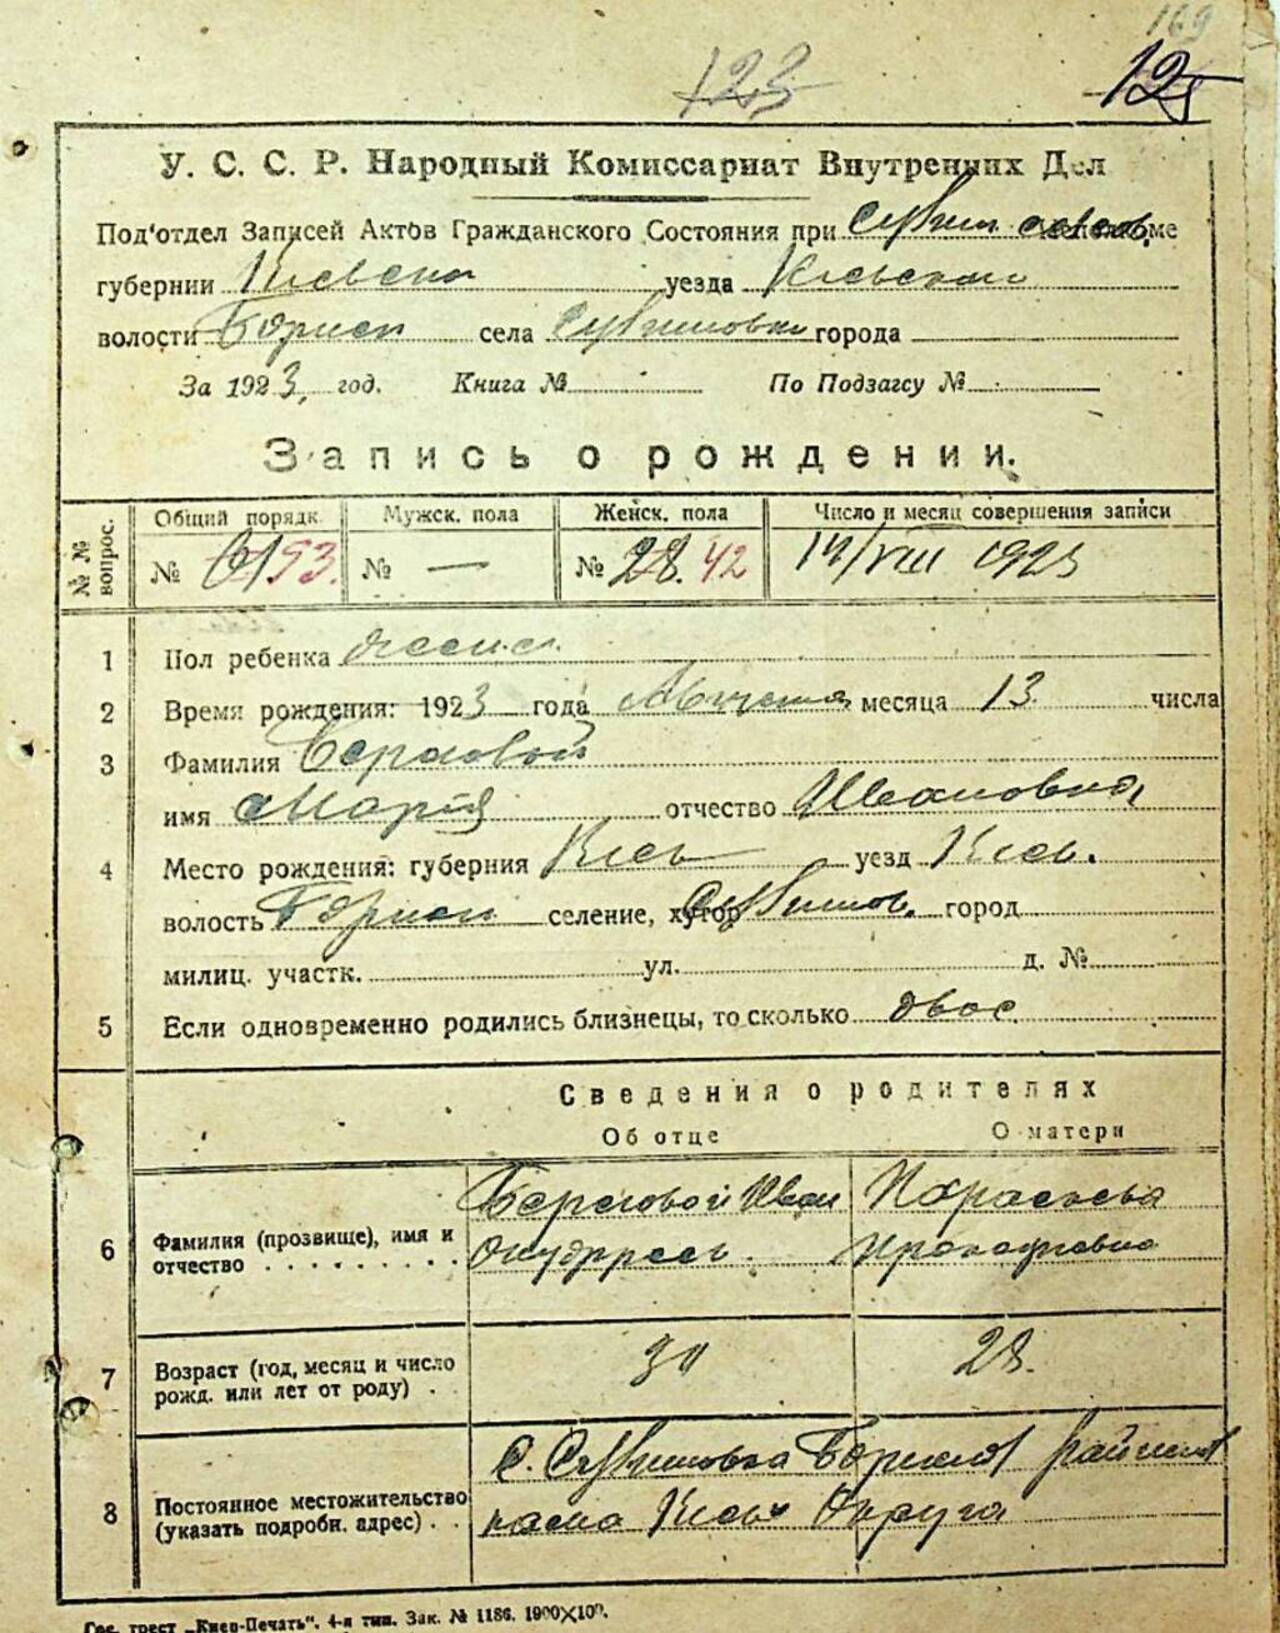 169
123
125
У. С. С. Р. Народный Комиссариат Внутренних Дел
Под'отдел Записей Актов Гражданского Состояния при
губернии Киевска уезда Киевскаи
волости Борисп села города
За 1923, год. Книга № По Подзагсу №
Запись о рождении.
№№ вопрос. Общий порядк. Мужск. пола Женск. пола Число и месяц совершения записи
№ 61 53. № — № 28. 42 14/VIII 1923
1 Пол ребенка женс.
2 Время рождения: 1923 года Августа месяца 13 числа
3 Фамилия Береговой
имя Мария отчество Ивановна,
4 Место рождения: губерния Киев уезд Киев.
волость Борисп селение, хутор город
милиц. участк. ул. д. №
5 Если одновременно родились близнецы, то сколько двое
Сведения о родителях
Об отце О матери
6 Фамилия (прозвище), имя и отчество . . . . . . . . . Береговой Иван Онуфриев. Параскева Прокофиевна
7 Возраст (год, месяц и число рожд. или лет от роду) . . 30 28.
8 Постоянное местожительство (указать подробн. адрес) . . С. Киев Округа
Гос. трест „Киев-Печать“. 4-я тип. Зак. № 1186. 1900×100.